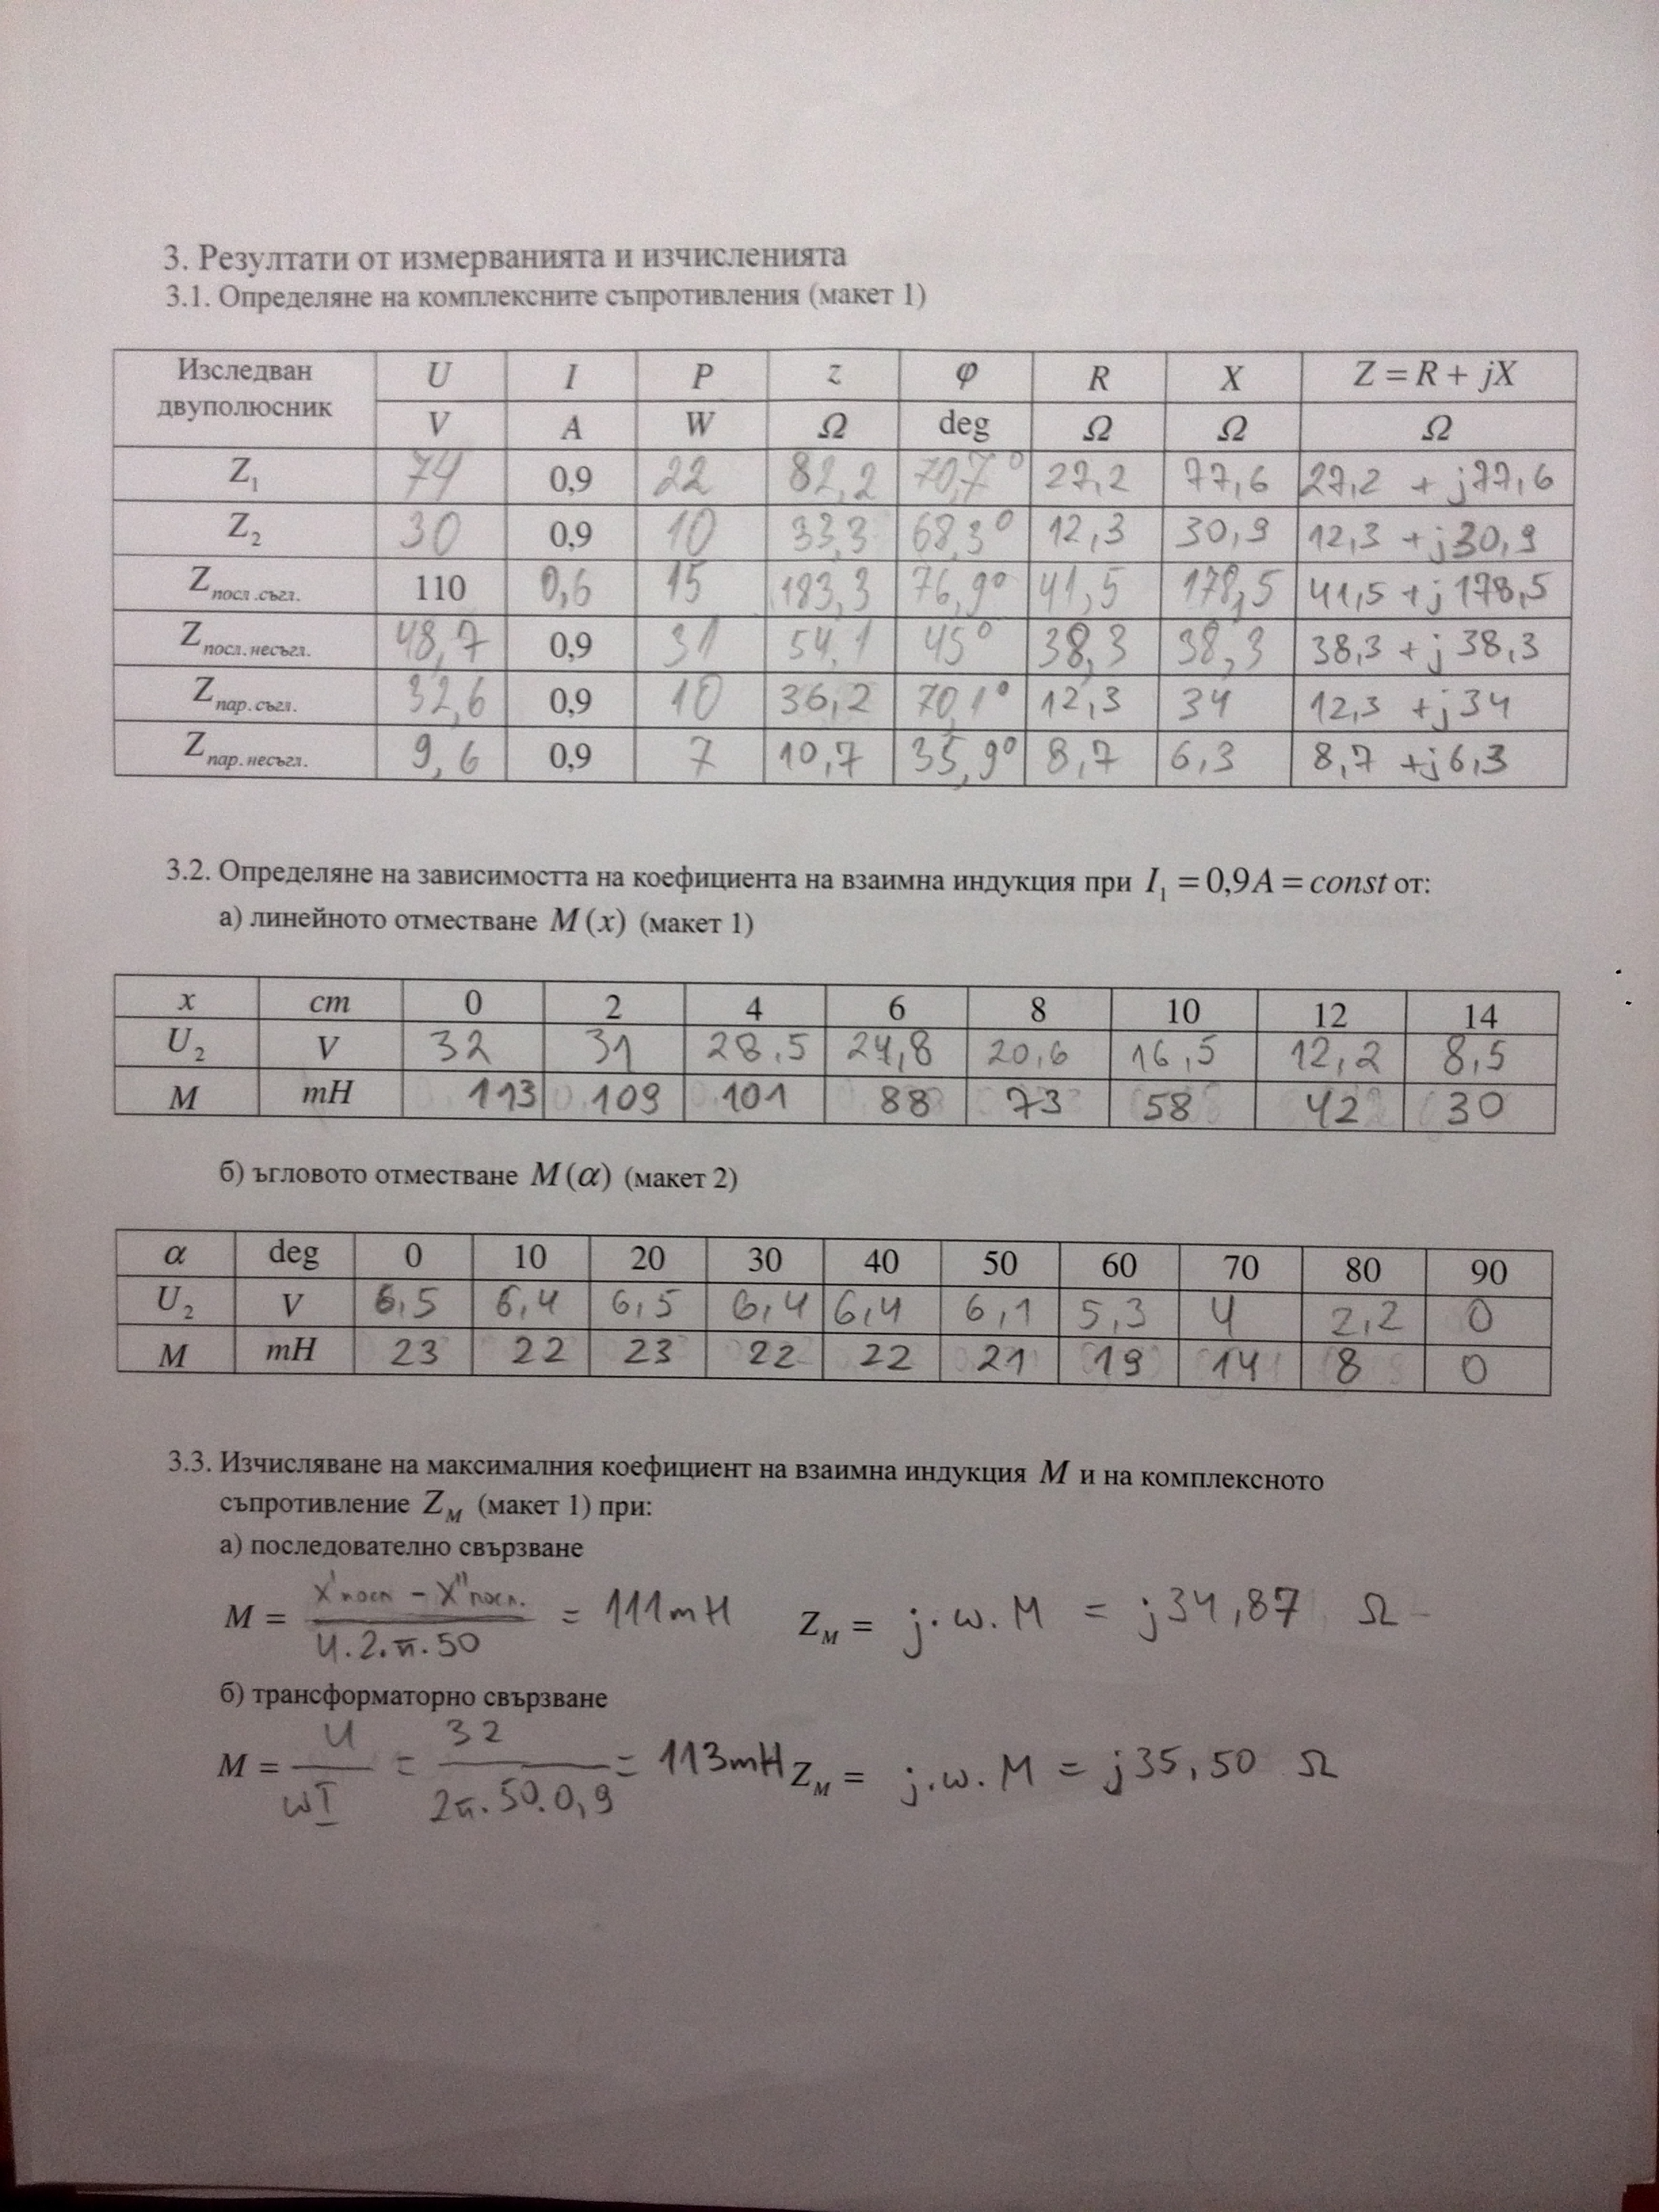 3. Резултати от измерванията и изчисленията
3.1. Определяне на комплексните съпротивления (макет 1)
Изследван двуполюсник U I P z φ R X Z = R + jX
V A W Ω deg Ω Ω Ω
Z₁ 74 0,9 22 82,2 70,7° 27,2 77,6 27,2 + j77,6
Z₂ 30 0,9 10 33,3 68,3° 12,3 30,9 12,3 + j30,9
Z посл.съгл. 110 0,6 15 183,3 76,9° 41,5 178,5 41,5 + j178,5
Z посл.несъгл. 48,7 0,9 31 54,1 45° 38,3 38,3 38,3 + j38,3
Z пар.съгл. 32,6 0,9 10 36,2 70,1° 12,3 34 12,3 + j34
Z пар.несъгл. 9,6 0,9 7 10,7 35,9° 8,7 6,3 8,7 + j6,3
3.2. Определяне на зависимостта на коефициента на взаимна индукция при I₁ = 0,9A = const от:
а) линейното отместване M(x) (макет 1)
x cm 0 2 4 6 8 10 12 14
U₂ V 32 31 28,5 24,8 20,6 16,5 12,2 8,5
M mH 113 109 101 88 73 58 42 30
б) ъгловото отместване M(α) (макет 2)
α deg 0 10 20 30 40 50 60 70 80 90
U₂ V 6,5 6,4 6,5 6,4 6,4 6,1 5,3 4 2,2 0
M mH 23 22 23 22 22 21 19 14 8 0
3.3. Изчисляване на максималния коефициент на взаимна индукция M и на комплексното
съпротивление Z_M (макет 1) при:
а) последователно свързване
M = (X'посл - X''посл.) / (4.2.π.50) = 111mH Z_M = j.ω.M = j34,87 Ω
б) трансформаторно свързване
M = U / ωI = 32 / (2π.50.0,9) = 113mH Z_M = j.ω.M = j35,50 Ω